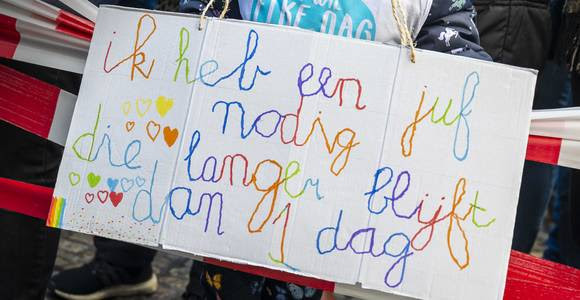 ELKE DAG
ik heb een juf
nodig
die langer blijft
dan 1 dag